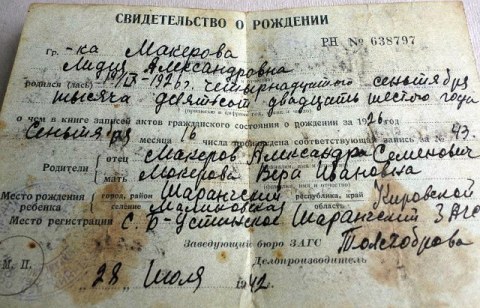 СВИДЕТЕЛЬСТВО О РОЖДЕНИИ
РН № 638797
Гр.-ка Макерова
Лидия Александровна
родился (лась) 14/IX-1926 г. четырнадцатого сентября
тысяча девятсот двадцать шестого года
о чем в книге записей актов гражданского состояния о рождении за 1926 год
Сентября месяца 16 числа произведена соответствующая запись за № 43.
Родители
отец Макеров Александр Семенович
мать Макерова Вера Ивановна
Место рождения ребенка
город, район Шарангский
селение Малиновская
республика, край Кировской
Место регистрации с. Б-Устинское Шарангский ЗАГС
Заведующий бюро ЗАГС Толстоброва
М. П.
Делопроизводитель
"28" Июля 1942г.